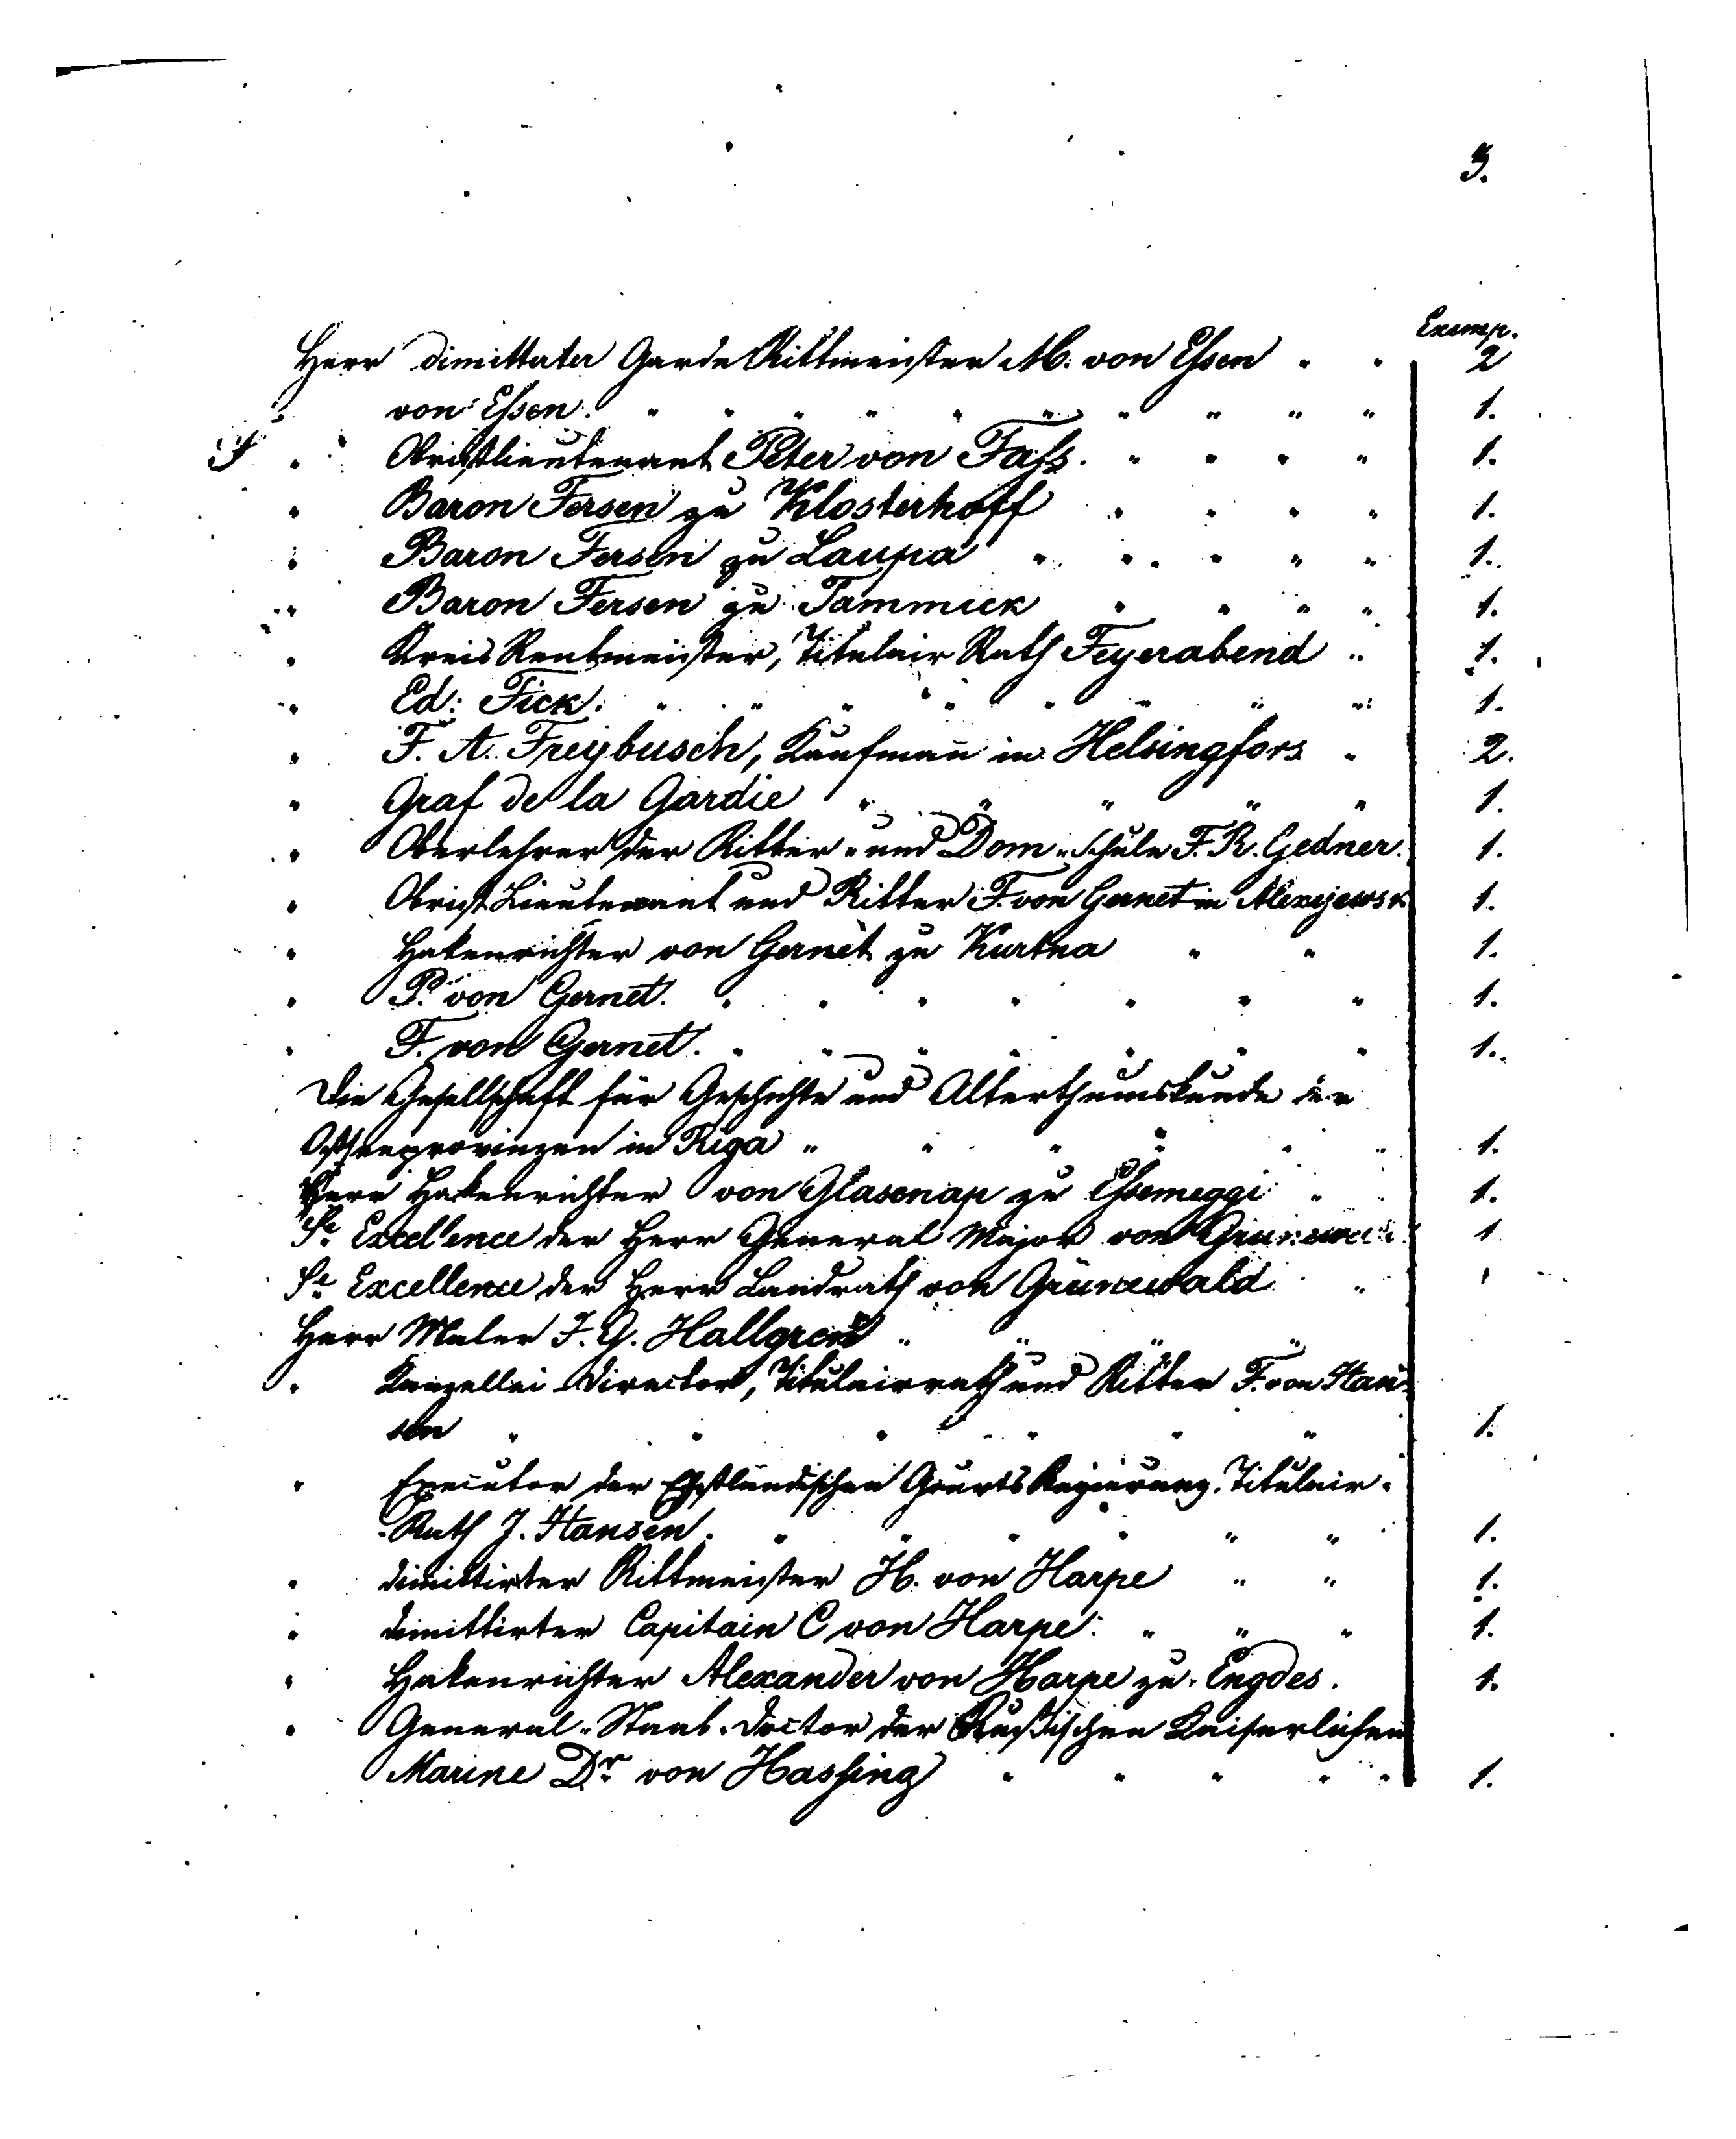 3.
Exemp.
Herr dimittirter Garde Rittmeister M. von Essen " " 2
" von Essen. " " " " " " " " " 1.
F " Obristlieutenant Peter von Fass. " " " " 1.
" Baron Fersen zu Klosterhoff " " " " 1.
" Baron Fersen zu Laupa " " " " " 1.
" Baron Fersen zu Tammick " " " " 1.
" Kreis Rentmeister, Titulair Rath Feyerabend " 1.
" Ed: Fick. " " " " " " " " 1.
" F. A. Freybusch, Kaufmañ in Helsingfors " 2.
" Graf de la Gardie " " " " " 1.
" Oberlehrer der Ritter- und Dom-Schule F. R. Gedner. 1.
" Obrist Lieutenant und Ritter F. von Gernet in Alexejewsk 1.
" Hakenrichter von Gernet zu Kurtna " " 1.
" P. von Gernet. " " " " " " " 1.
" F. von Gernet. " " " " " " " 1.
Die Gesellschaft für Geschichte und Alterthumskunde der
Ostseeprovinzen in Riga " " " " " " 1.
Herr Hakenrichter von Glasenap zu Essemeggi " " 1.
Se Excellence der Herr General Major von Grünewald 1
Se Excellence der Herr Landrath von Grünewald " 1
Herr Maler F. G. Hallgren " " " "
" Kanzellei Director, Titulairrath und Ritter F. von Han-
sen " " " " " " 1.
" Executor der Ehstländischen Gouvts Regierung. Titulair-
Rath J. Hansen. " " " " " " 1.
" dimittirter Rittmeister H. von Harpe " " 1.
" dimittirter Capitain C von Harpe. " " " 1.
" Hakenrichter Alexander von Harpe zu Engdes. 1.
" General-Staab-Doctor der Russischen Kaiserlichen
Marine Dr von Hassing " " " " " 1.